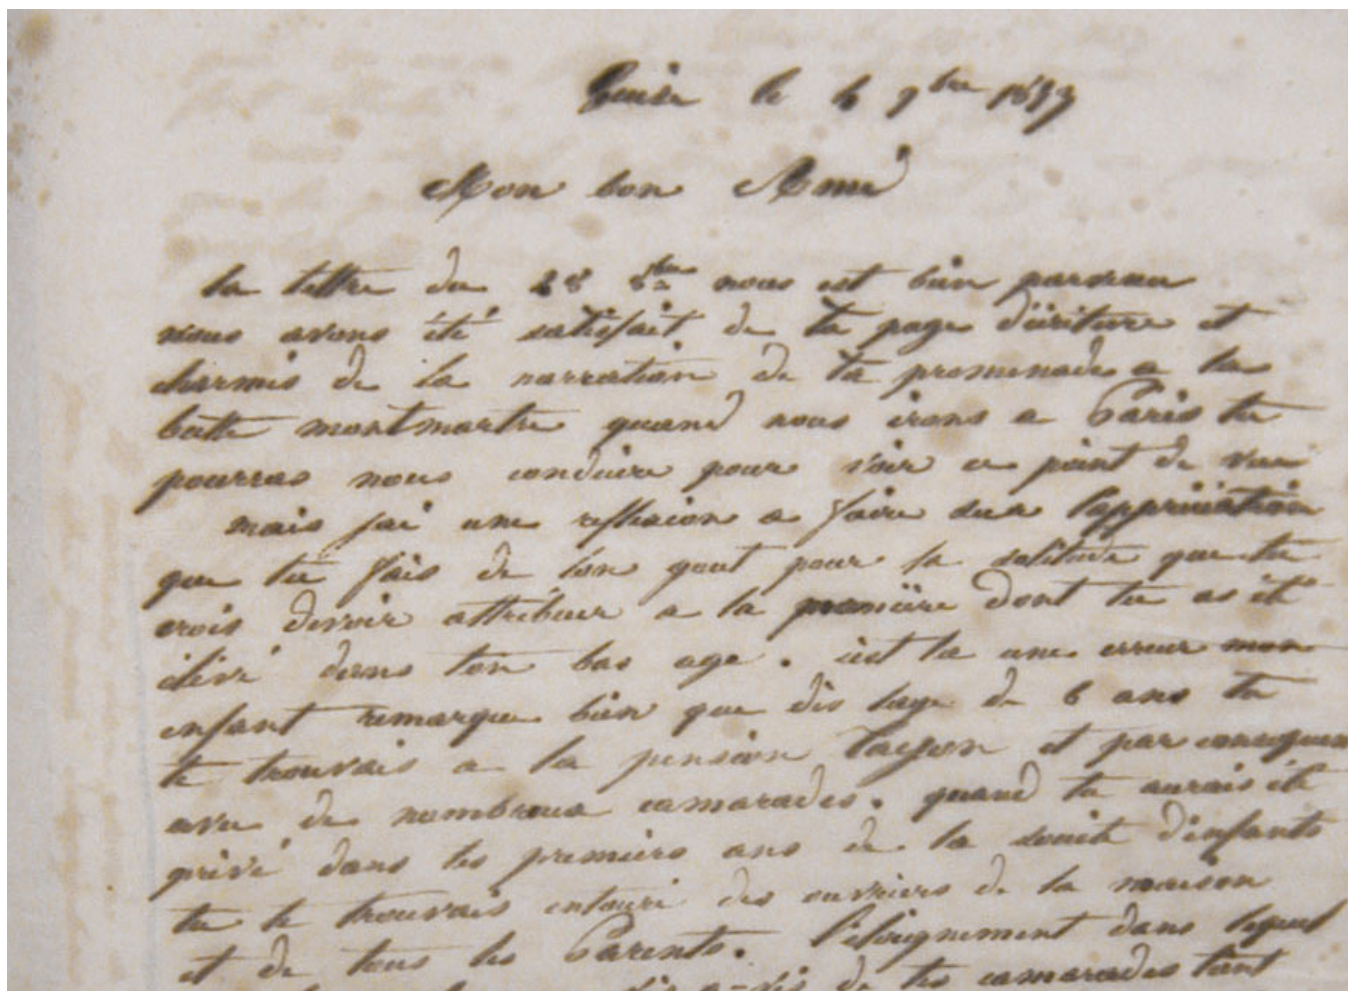 Guise le 6 9bre 1853
Mon bon Aimé
ta lettre du 28 8bre nous est bien parvenu
nous avons été satisfait de ta page d'écriture et
charmés de la narration de ta promenade a la
butte montmartre quand nous irons a Paris tu
pourras nous conduire pour voir ce point de vue
mais jai une reflexion a faire sur l'appréciation
que tu fais de ton gout pour la solitude que tu
crois devoir attribuer a la manière dont tu as été
élevé dans ton bas age. c'est la une erreur mon
enfant remarque bien que dès lage de 6 ans tu
te trouvais a la pension et par consequent
avec de nombreux camarades. quand tu aurais été
privé dans tes premiers ans de la société d'enfants
tu te trouvais entouré des ouvriers de la maison
et de tous tes Parents. l'éloignement dans lequel
vis-a-vis de tes camarades tant